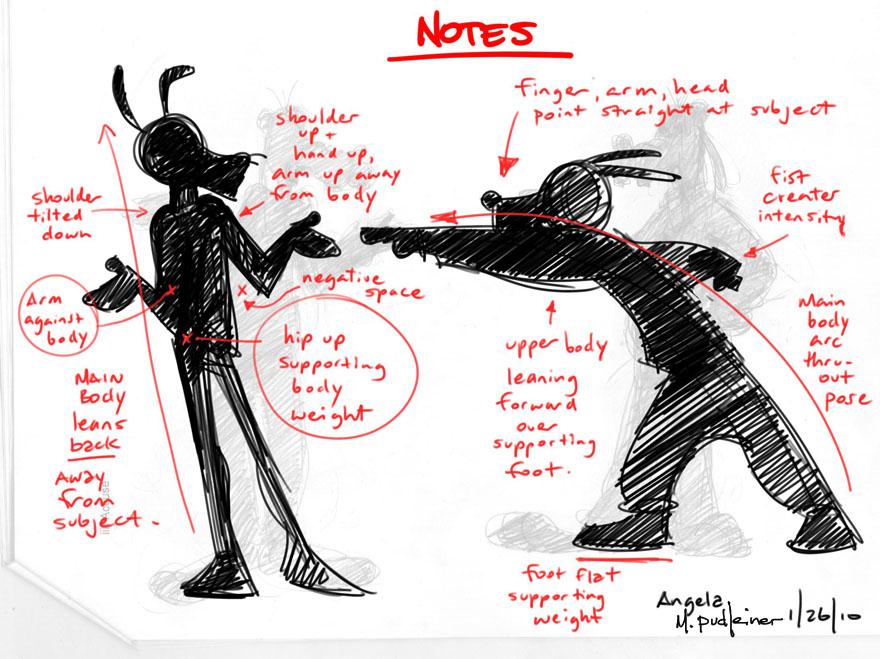 NOTES
shoulder
up +
hand up,
arm up away
from body
finger, arm, head
point straight at subject
shoulder
tilted
down
fist
creater
intensity
Arm
against
body
negative
space
hip up
supporting
body
weight
Main
Body
leans
back
Away
from
subject.
upper body
leaning
forward
over
supporting
foot.
Main
body
arc
thru-
out
pose
foot flat
supporting
weight
Angela
M. Pudleiner 1/26/10